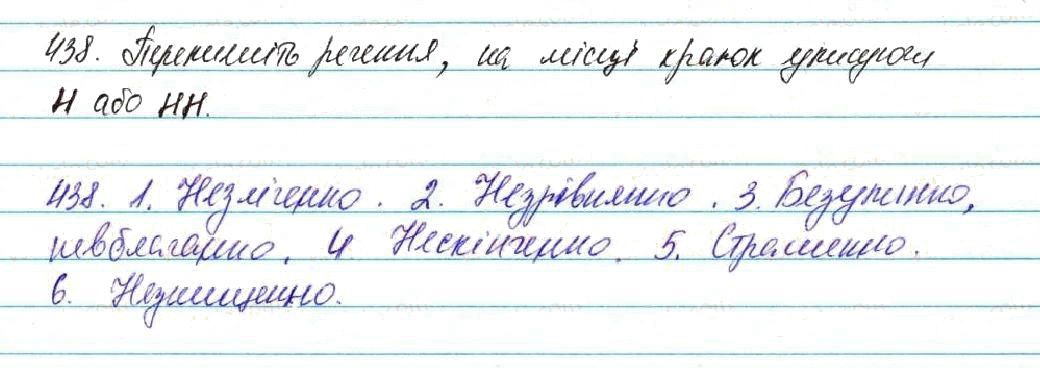 438. Перепишіть речення, на місці крапок
Н або НН.
438. 1. Незліченно. 2. Незрівнянно. 3. Безупинно,
невблаганно. 4. Нескінченно. 5. Страшенно.
6. Незнищенно.